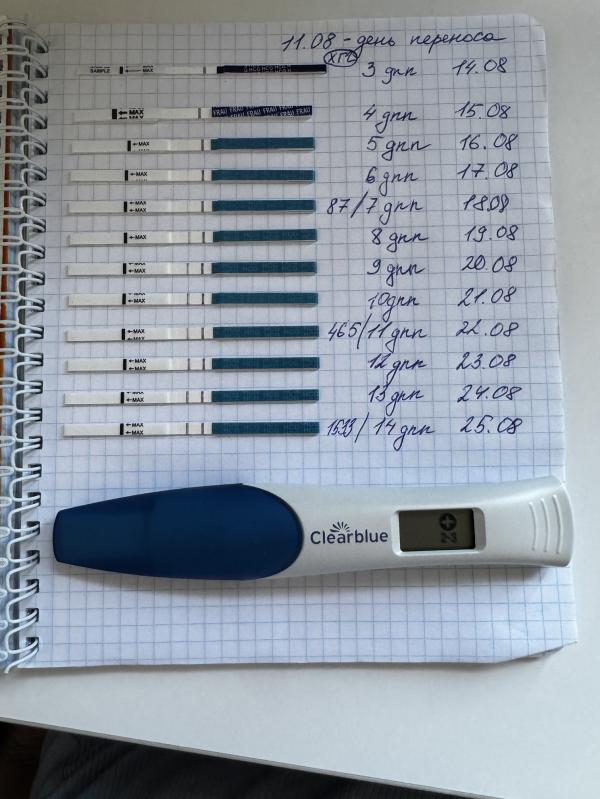 11.08 - день переноса
ХГЧ
SAMPLE MAX 3 дпп 14.08
MAX FRAU FRAU FRAU FRAU 4 дпп 15.08
MAX 5 дпп 16.08
MAX 6 дпп 17.08
MAX 87/7 дпп 18.08
MAX 8 дпп 19.08
MAX 9 дпп 20.08
MAX 10 дпп 21.08
MAX 465/11 дпп 22.08
MAX 12 дпп 23.08
MAX 13 дпп 24.08
MAX 1533/14 дпп 25.08
Clearblue
+
2-3